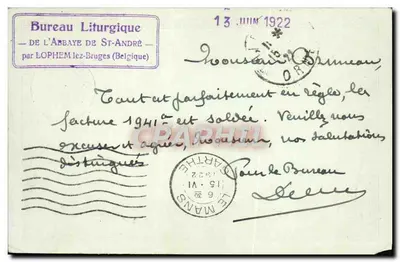 Bureau Liturgique
DE L'ABBAYE DE ST-ANDRÉ
par LOPHEM lez-Bruges (Belgique)
13 JUIN 1922
Monsieur
Tout est parfaitement en règle, les
facture 1941a est soldée. Veuillez nous
excuser et agréer, Monsieur, nos salutations
distinguées
Pour le Bureau
LE MANS
SARTHE
15 - VI
1922